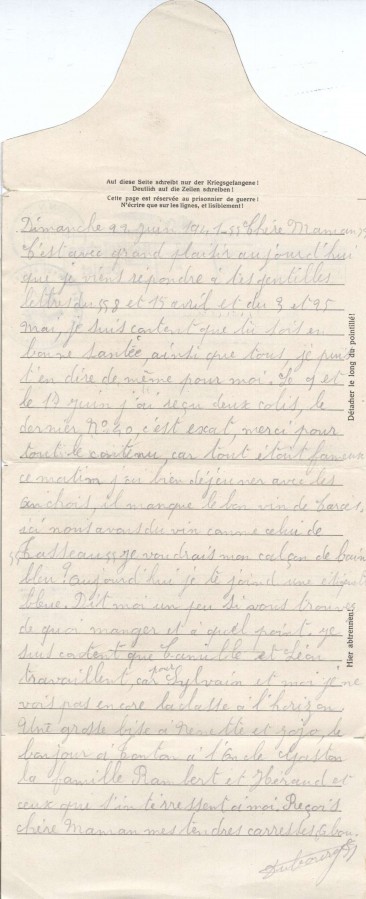 Auf diese Seite schreibt nur der Kriegsgefangene!
Deutlich auf die Zeilen schreiben!
Cette page est réservée au prisonnier de guerre!
N'écrire que sur les lignes, et lisiblement!
Dimanche 22 juin 1941 Chère Maman
C'est avec grand plaisir aujourd'hui
que je viens répondre à tes gentilles
lettres du 8 et 15 avril et du et 25
mai, je suis content que tu sois en
bonne santée, ainsi que tous, je puis
t'en dire de même pour moi. Le 9 et
le 17 juin j'ai reçu deux colis, le
dernier N° 20, c'est exat, merci pour
tout le contenu, car tout était fameux
ce matin j'ai bien déjeuner avec les
anchois, il manque le bon vin de
ici nous avons du vin comme celui de
je voudrais mon calçon de bain
bleu? aujourd'hui je te joind une
bleue. Dit moi un peu si vous trouvez
de quoi manger et à quel point. je
suis content que Camille et Léon
travaillent, car pour Sylvain et moi je ne
vois pas encore la classe à l'horizon
Une grosse bise à Renette et jojo, le
bonjour à Tonton à l'Oncle Gaston
la famille Rambert et Héraud et
ceux que s'intérressent à moi. Reçois
chère Maman mes tendres carresses.
Détacher le long du pointillé!
Hier abtrennen!